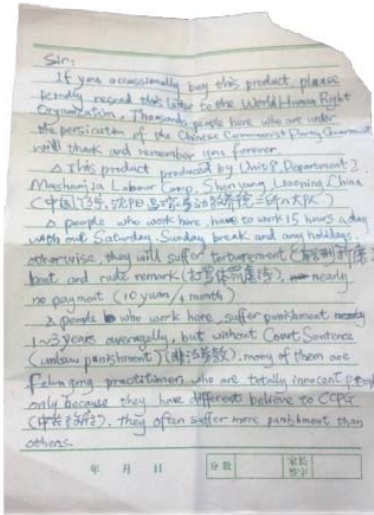 Sir:
If you occassionally buy this product, please
kindly resend this letter to the World Human Right
Organization. Thousands people here who are under
the persicution of the Chinese Communist Party Government
will thank and remember you forever.
△ This product produced by Unit 8, Department 2,
Mashanjia Labour Camp, Shen yang, Liaoning, China
(中国, 辽宁, 沈阳, 马三家劳动教养院二所八大队)
△ people who work here, have to work 15 hours a day
with out Saturday, Sunday break and any holidays,
otherwise, they will suffer torturement
beat and rude remark (打骂体罚虐待), nearly
no payment (10 yuan/1 month)
△ people who work here, suffer punishment
1~3 years averagelly, but without Court Sentence
(unlaw punishment) (非法劳教), many of them are
Falungong practitioner, who are totally innocent people
only because they have different believe to CCPG
they often suffer more punishment than
others.
年 月 日 分数 家长签字